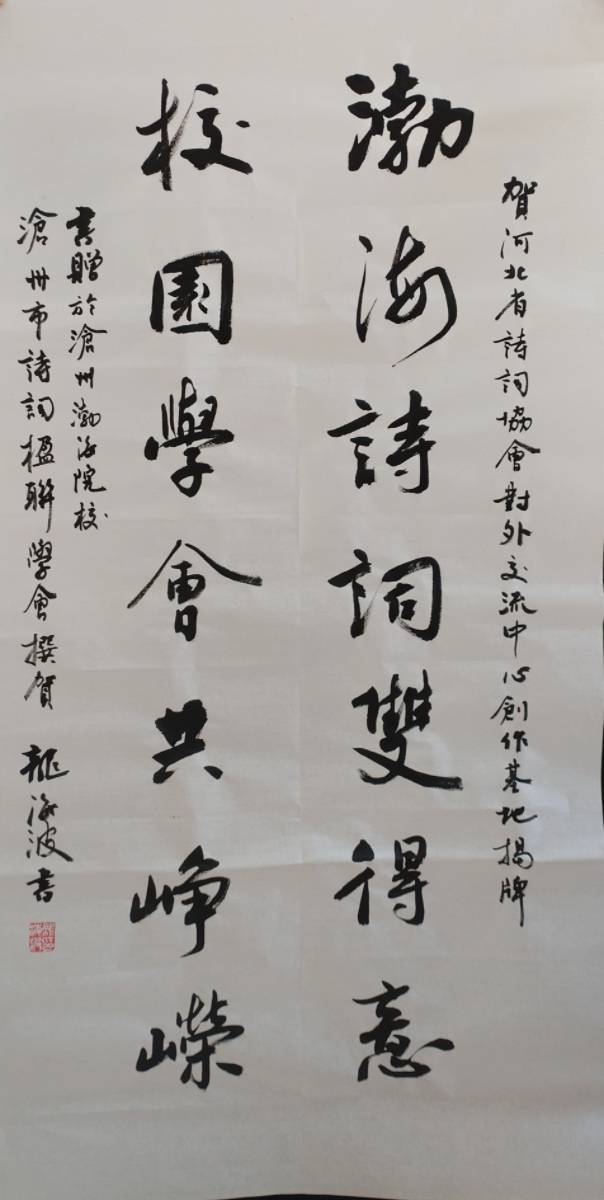 賀河北省詩詞協會對外交流中心創作基地揭牌
渤海詩詞雙得意
校園學會共崢嶸
書贈於滄州渤海院校
滄州市詩詞楹聯學會撰賀 龍海波書